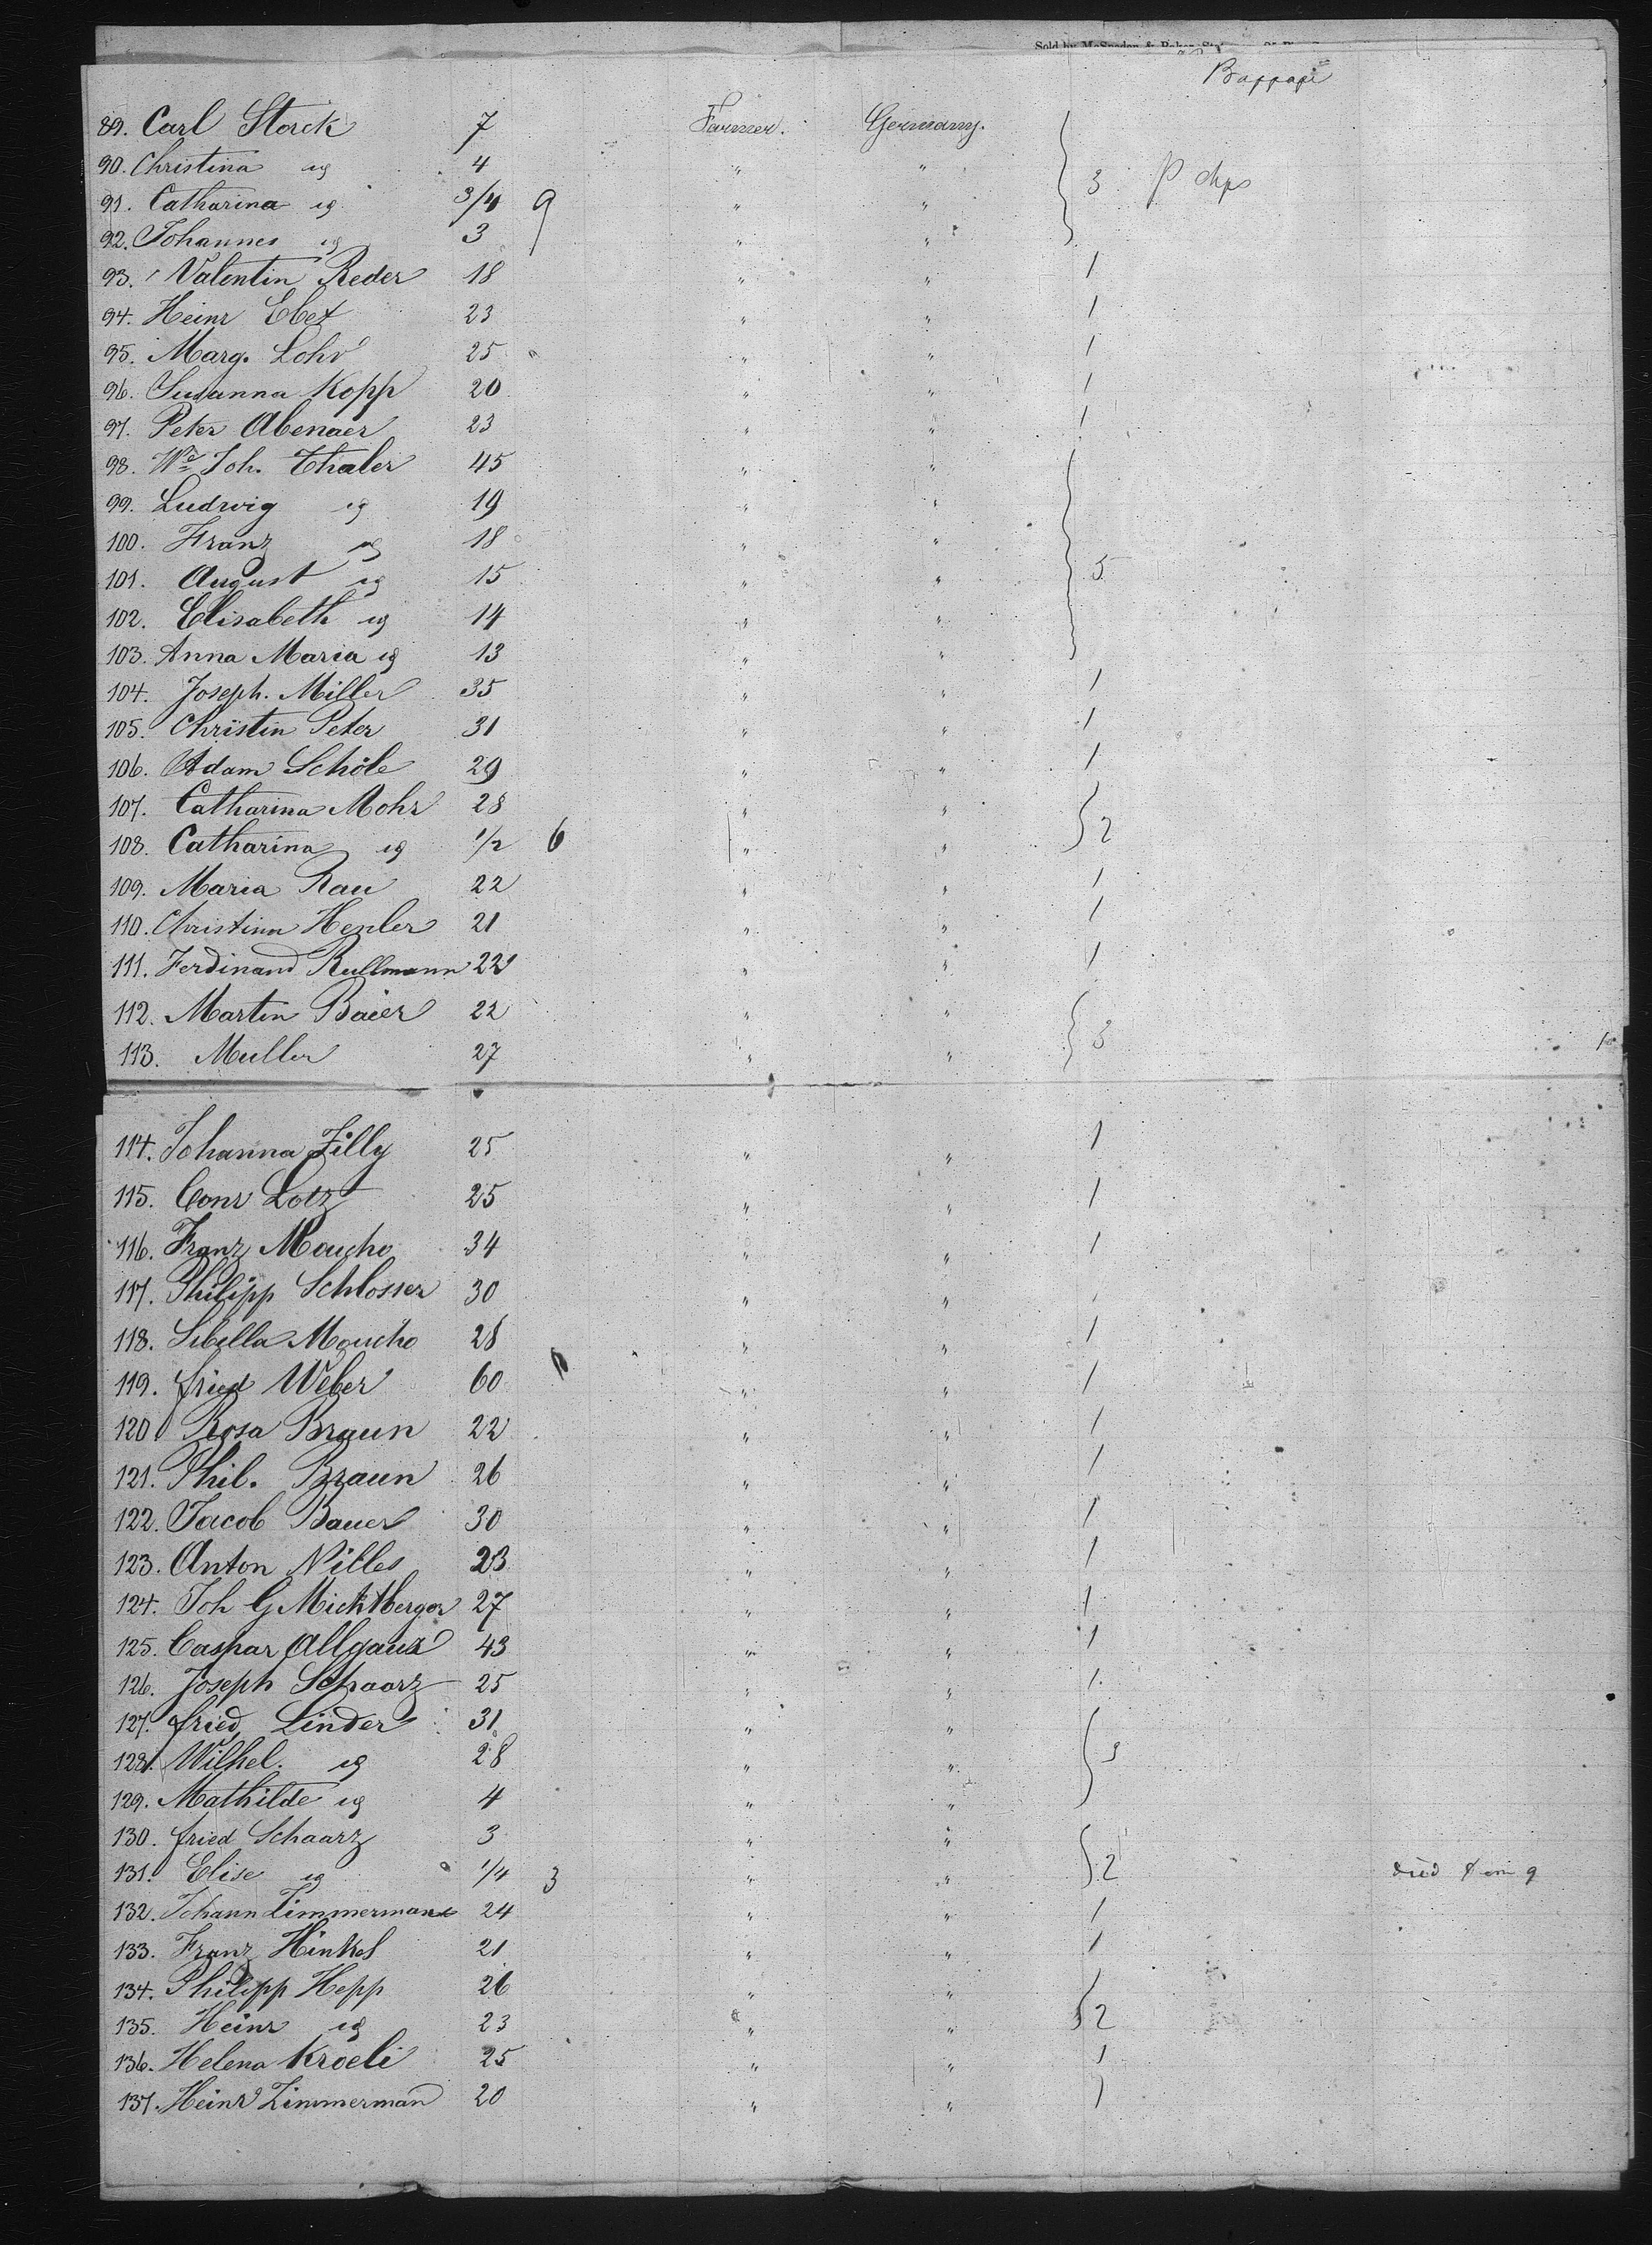 Baggage
89. Carl Storck 7 Farmer. Germany.
90. Christina " 4 " " 3 P chgs
91. Catharina " 3/4 9 " "
92. Johannes " 3 " "
93. Valentin Reder 18 " " 1
94. Heinr Ebet 23 " " 1
95. Marg. Lohr 25 " " 1
96. Susanna Kopp 20 " " 1
97. Peter Abenaer 23 " " 1
98. We Joh. Thaler 45 " "
99. Ludwig " 19 " "
100. Franz " 18 " "
101. August " 15 " " 5
102. Elisabeth " 14 " "
103. Anna Maria " 13 " "
104. Joseph. Miller 35 " " 1
105. Christin Peter 31 " " 1
106. Adam Schöle 29 " " 1
107. Catharina Mohr 28 " "
108. Catharina " 1/2 6 " " 2
109. Maria Rau 22 " " 1
110. Christina Henler 21 " " 1
111. Ferdinand Rullmann 22 " " 1
112. Martin Baier 22 " "
113. Muller 27 " " 3
114. Johanna Zilly 25 " " 1
115. Conr Lotz 25 " " 1
116. Franz Moucho 34 " " 1
117. Philipp Schlosser 30 " "
118. Sibella Moucho 28 " " 1
119. fried Weber 60 " " 1
120 Rosa Braun 22 " " 1
121. Phil. Braun 26 " " 1
122. Jacob Bauer 30 " " 1
123. Anton Nilles 23 " " 1
124. Joh G Michtberger 27 " " 1
125. Caspar Allgauz 43 " " 1
126. Joseph Schaarz 25 " " 1
127. fried Linder 31 " "
128. Wilhel. " 28 " " 3
129. Mathilde " 4 " "
130. fried Schaarz 3 " "
131. Elise " 1/4 3 " " 2 died
132. Johann Zimmerman 24 " " 1
133. Franz Hinkel 21 " " 1
134. Philipp Hepp 26 " "
135. Heinr " 23 " " 2
136. Helena Kroeli 25 " " 1
137. Heinr Zimmerman 20 " " 1